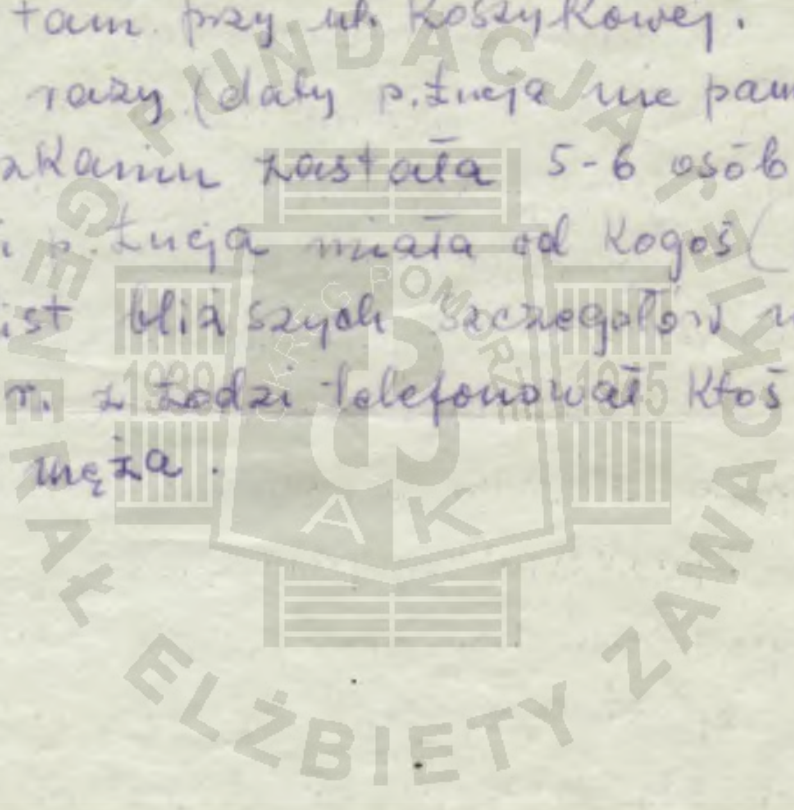 tam. przy ul. Koszykowej.
razy (daty p. Łucja nie pam
zkaniu zastała 5-6 osób
i p. Łucja miała od kogoś (
ist bliższych szczegółów n
r. z Łodzi telefonował ktoś
męża.
FUNDACJA
GENERAŁ ELŻBIETY ZAWACKIEJ
OKRĘG POMORZE
1939 1945
AK